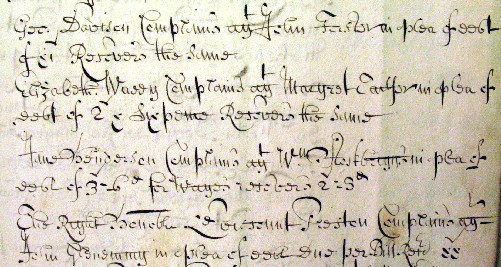 Geo: Davison Complains agt John Forster in plea of debt
of Recovers the same
Elizabeth Waddy Complains agt Margret in plea of
debt of 2s & Sixpence Recovers the same
Ann Henderson Complains agt Wm in plea of
debt of 3s-6d for Wages recovers 2s-3d
The Right Honoble Ld Viscount Preston Complains agt
John in plea of debt due per Bill